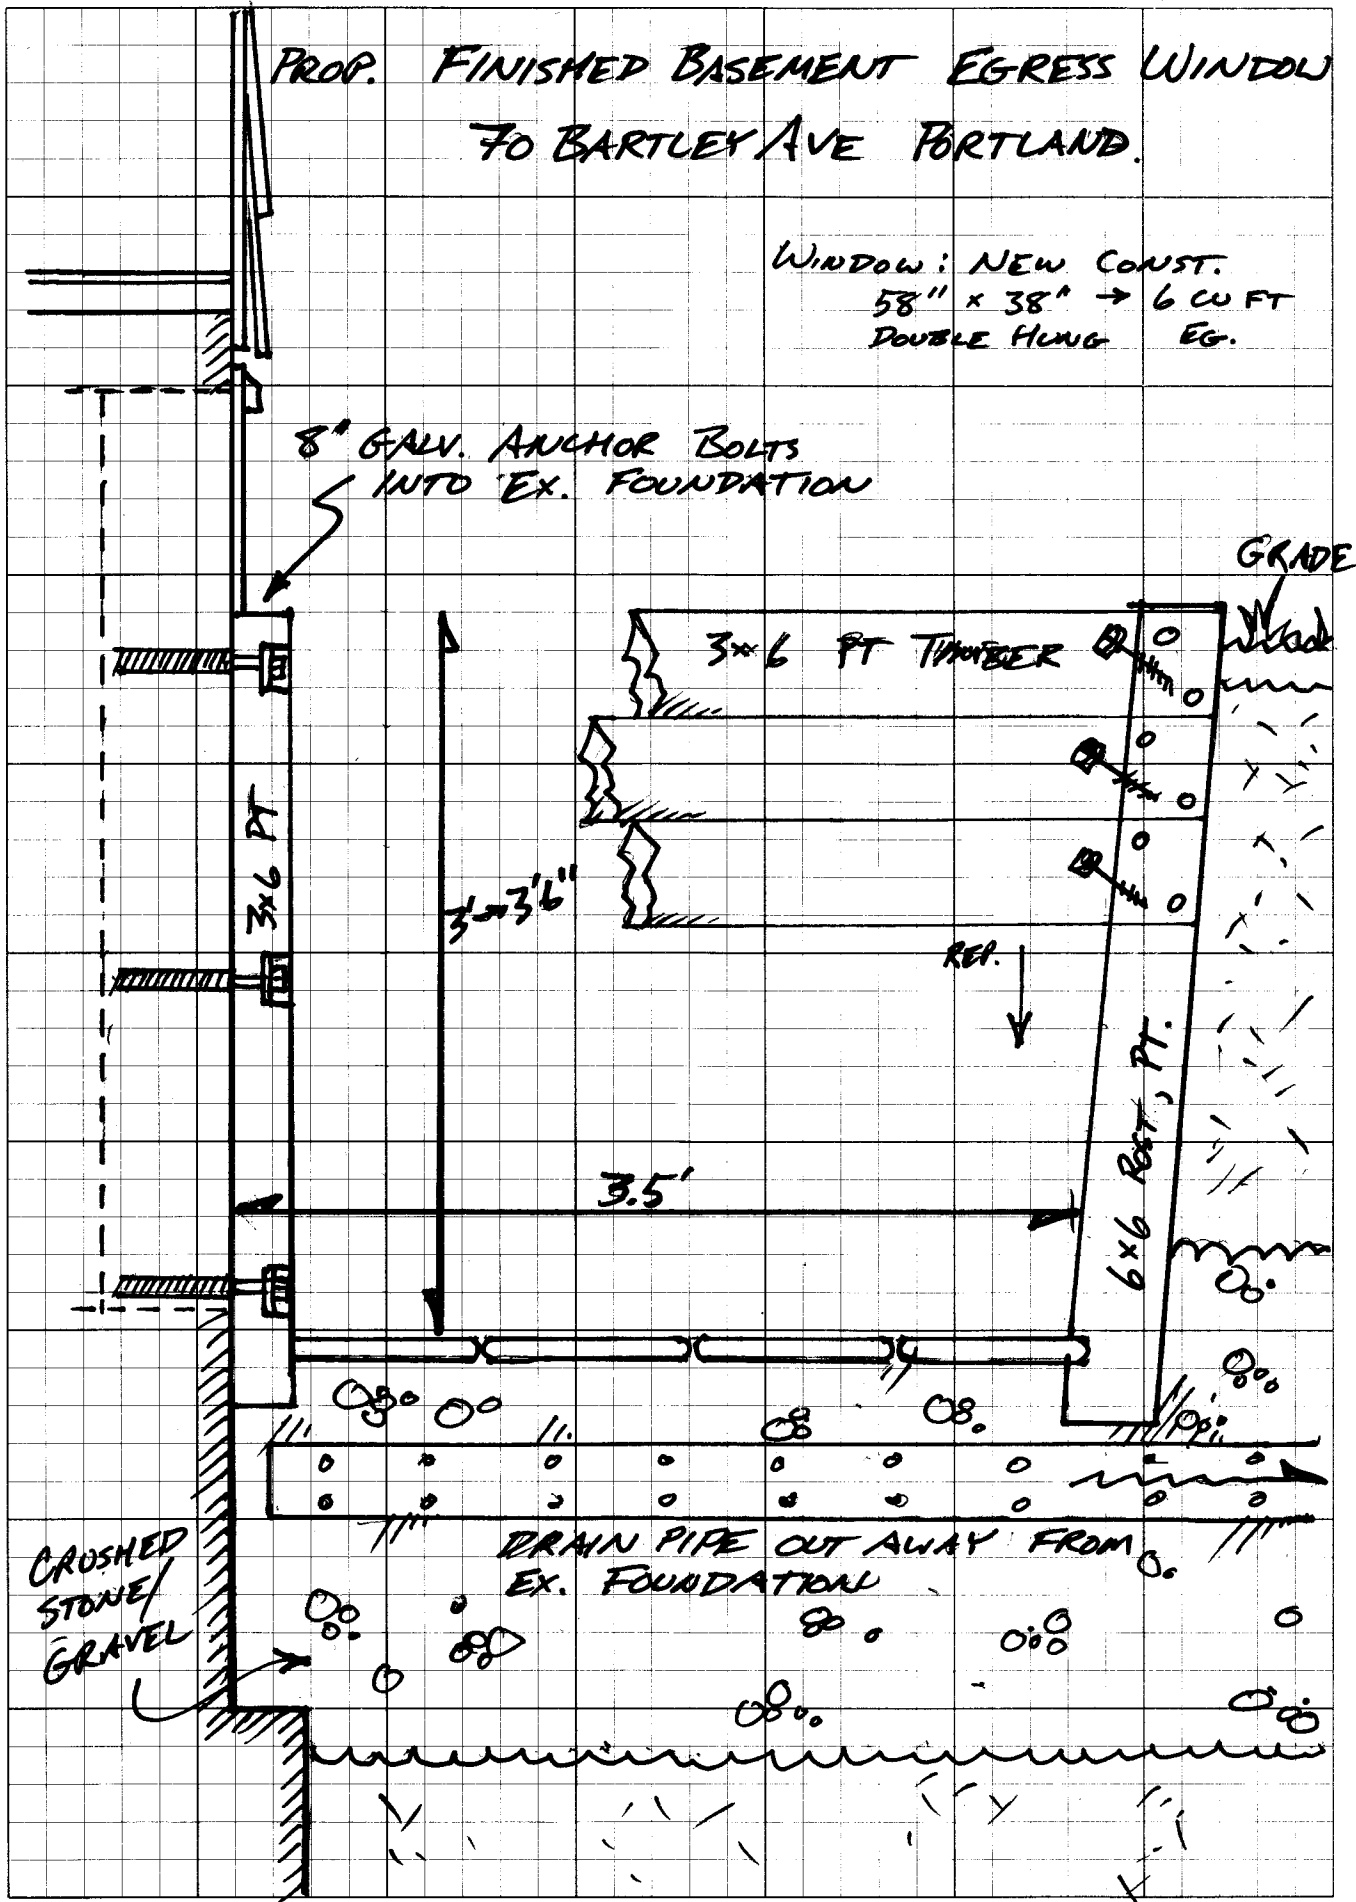 PROP. FINISHED BASEMENT EGRESS WINDOW
70 BARTLEY AVE PORTLAND.
WINDOW: NEW CONST.
58" x 38" → 6 CU FT
DOUBLE HUNG EG.
8" GALV. ANCHOR BOLTS
INTO EX. FOUNDATION
GRADE
3x6 PT TIMBER
3x6 PT
3'→3'6"
REP.
6x6 POST, PT.
3.5'
DRAIN PIPE OUT AWAY FROM
EX. FOUNDATION
CRUSHED
STONE/
GRAVEL